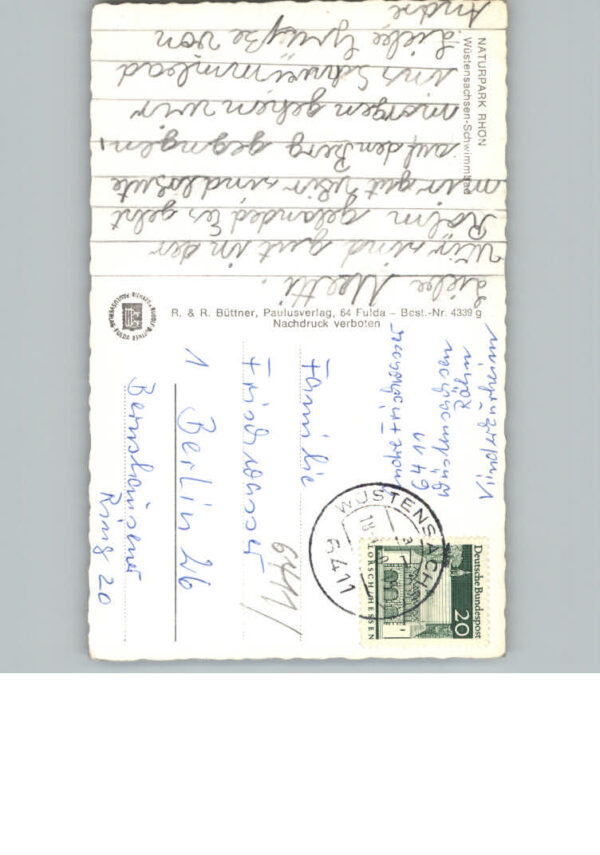 NATURPARK RHÖN
Wüstensachsen-Schwimmbad
Liebe Mutti!
Wir sind gut in der
gelanded Es geht
mir gut Wir sind Heute
auf den Berg gegangen,
morgen gehen wir
ins Schwimmbad
Liebe Grüße von
André
R. & R. Büttner, Paulusverlag, 64 Fulda – Best.-Nr. 4339 g
Nachdruck verboten
Andre
6411
Wüstensachsen
Röhn
Familie
1 Berlin 26
Bernshausener
Ring 20
6411
WÜSTENSACH
6411
Deutsche Bundespost
20
LORSCH/HESSEN